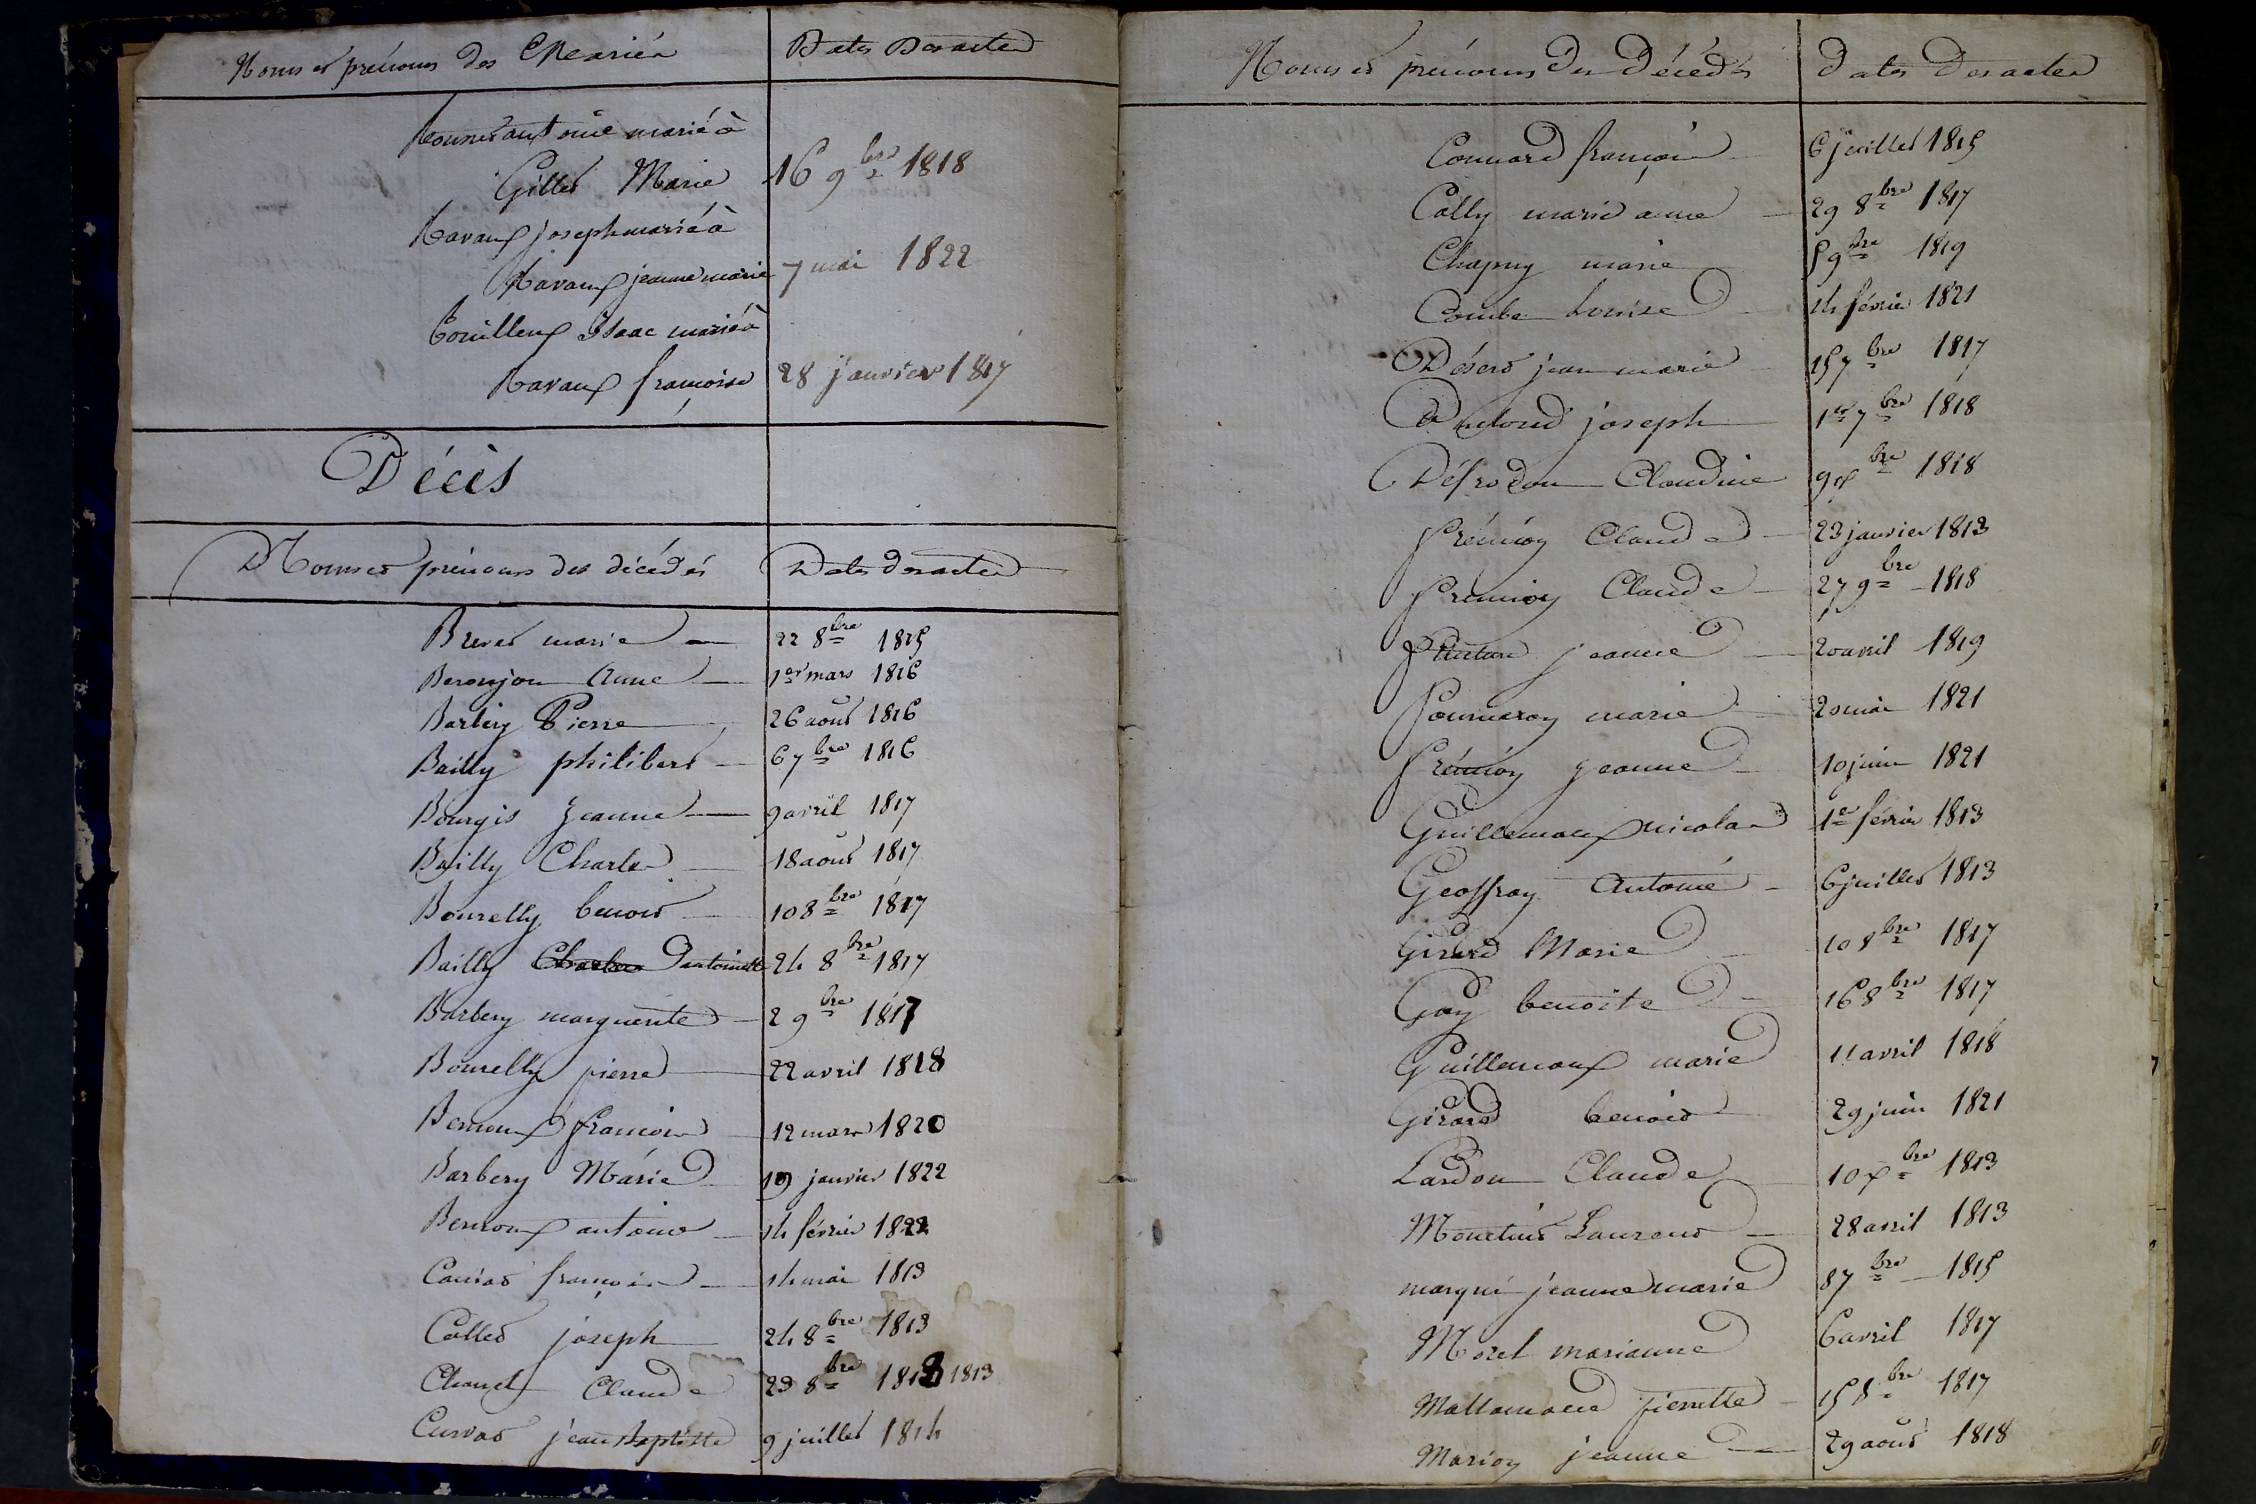 Noms et prénoms des Mariés Dates Des actes
antoine marié à
Gillet Marie 16 9bre 1818
Ravaux joseph marié à
Ravaux jeanne marie 7 mai 1822
Isaac marié à
Ravaux françoise 28 janvier 1817
Décès
Noms et prénoms des décédés Dates des actes
Brevet marie 22 8bre 1815
Beronjon Anne 1er mars 1816
Barbery Pierre 26 aout 1816
Bailly philibert 6 7bre 1816
Bourgis Jeanne 9 avril 1817
Bailly Charles 18 aout 1817
Bourelly benoit 10 8bre 1817
Bailly Charles antoinette 24 8bre 1817
Barbery marguerite 2 9bre 1817
Bourelly pierre 22 avril 1818
Bernoux françois 12 mars 1820
Barbery Marie 19 janvier 1822
Bernoux antoine 14 février 1822
françois 14 mai 1813
Collet joseph 24 8bre 1813
Claude 23 8bre 1813 1813
Curvat jean Baptiste 9 juillet 1814
Noms et prénoms Des Décédés Dates Des actes
Connard françois 6 juillet 1815
Colly marie anne 29 8bre 1817
Chapuy marie 5 9bre 1819
Combe Louise 14 février 1821
jean marie 15 7bre 1817
joseph 1er 7bre 1818
Claudine 9 xbre 1818
frémion Claude 23 janvier 1813
fremion Claude 27 9bre 1818
jeanne 20 avril 1819
marie 20 mai 1821
frémion jeanne 10 juin 1821
Guillemaux nicolas 1er février 1813
Geoffray Antoine 6 juillet 1813
Girard Marie 10 8bre 1817
Gay benoite 16 8bre 1817
Guillemaux marie 11 avril 1818
Girard benoit 29 juin 1821
Lardon Claude 10 xbre 1813
Laurent 28 avril 1813
jeanne marie 8 7bre 1815
Morel marianne 6 avril 1817
pierrette 15 8bre 1817
Marion jeanne 29 aout 1818